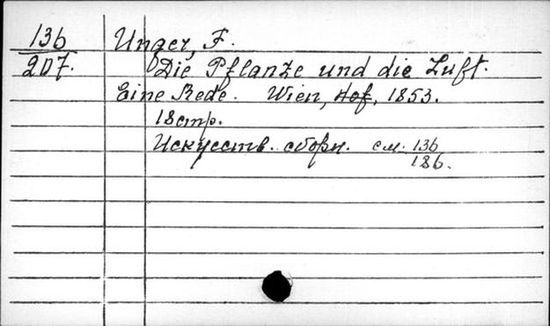 136 Unger, F.
207. Die Pflanze und die Luft.
Eine Rede. Wien, Hof, 1853.
18 стр.
Искусств. сборн. см. 136
186.